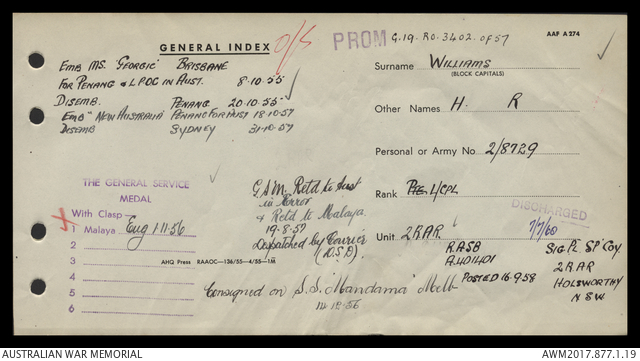 GENERAL INDEX O/S
PROM G.19. RO. 3402. OF 57
AAF A 274
EMB MS. "GEORGIC" BRISBANE
FOR PENANG & LPOC IN AUST. 8.10.55
DISEMB. PENANG 20.10.55
EMB "NEW AUSTRALIA" PENANG FOR AUST 18.10.57
DISEMB SYDNEY 31.10.57
Surname WILLIAMS
(BLOCK CAPITALS)
Other Names H. R
Personal or Army No. 2/8729
Rank Pte. L/CPL
DISCHARGED
7/7/60
Unit 2RAR
R.A.S.B
A.401401
POSTED 16.9.58
SIG PL SP COY
2 RAR
HOLSWORTHY
N.S.W.
THE GENERAL SERVICE
MEDAL
With Clasp
1 Malaya Eng 1.11.56
2
3
4
5
6
AHQ Press RAAOC—136/55—4/55—1M
G.S.M. Retd to Aust
in Error
& Retd to Malaya.
19.8.57
Despatched by Courier
(D.S.D)
Consigned on S.S. "Mandama" Melb
AUSTRALIAN WAR MEMORIAL
AWM2017.877.1.19